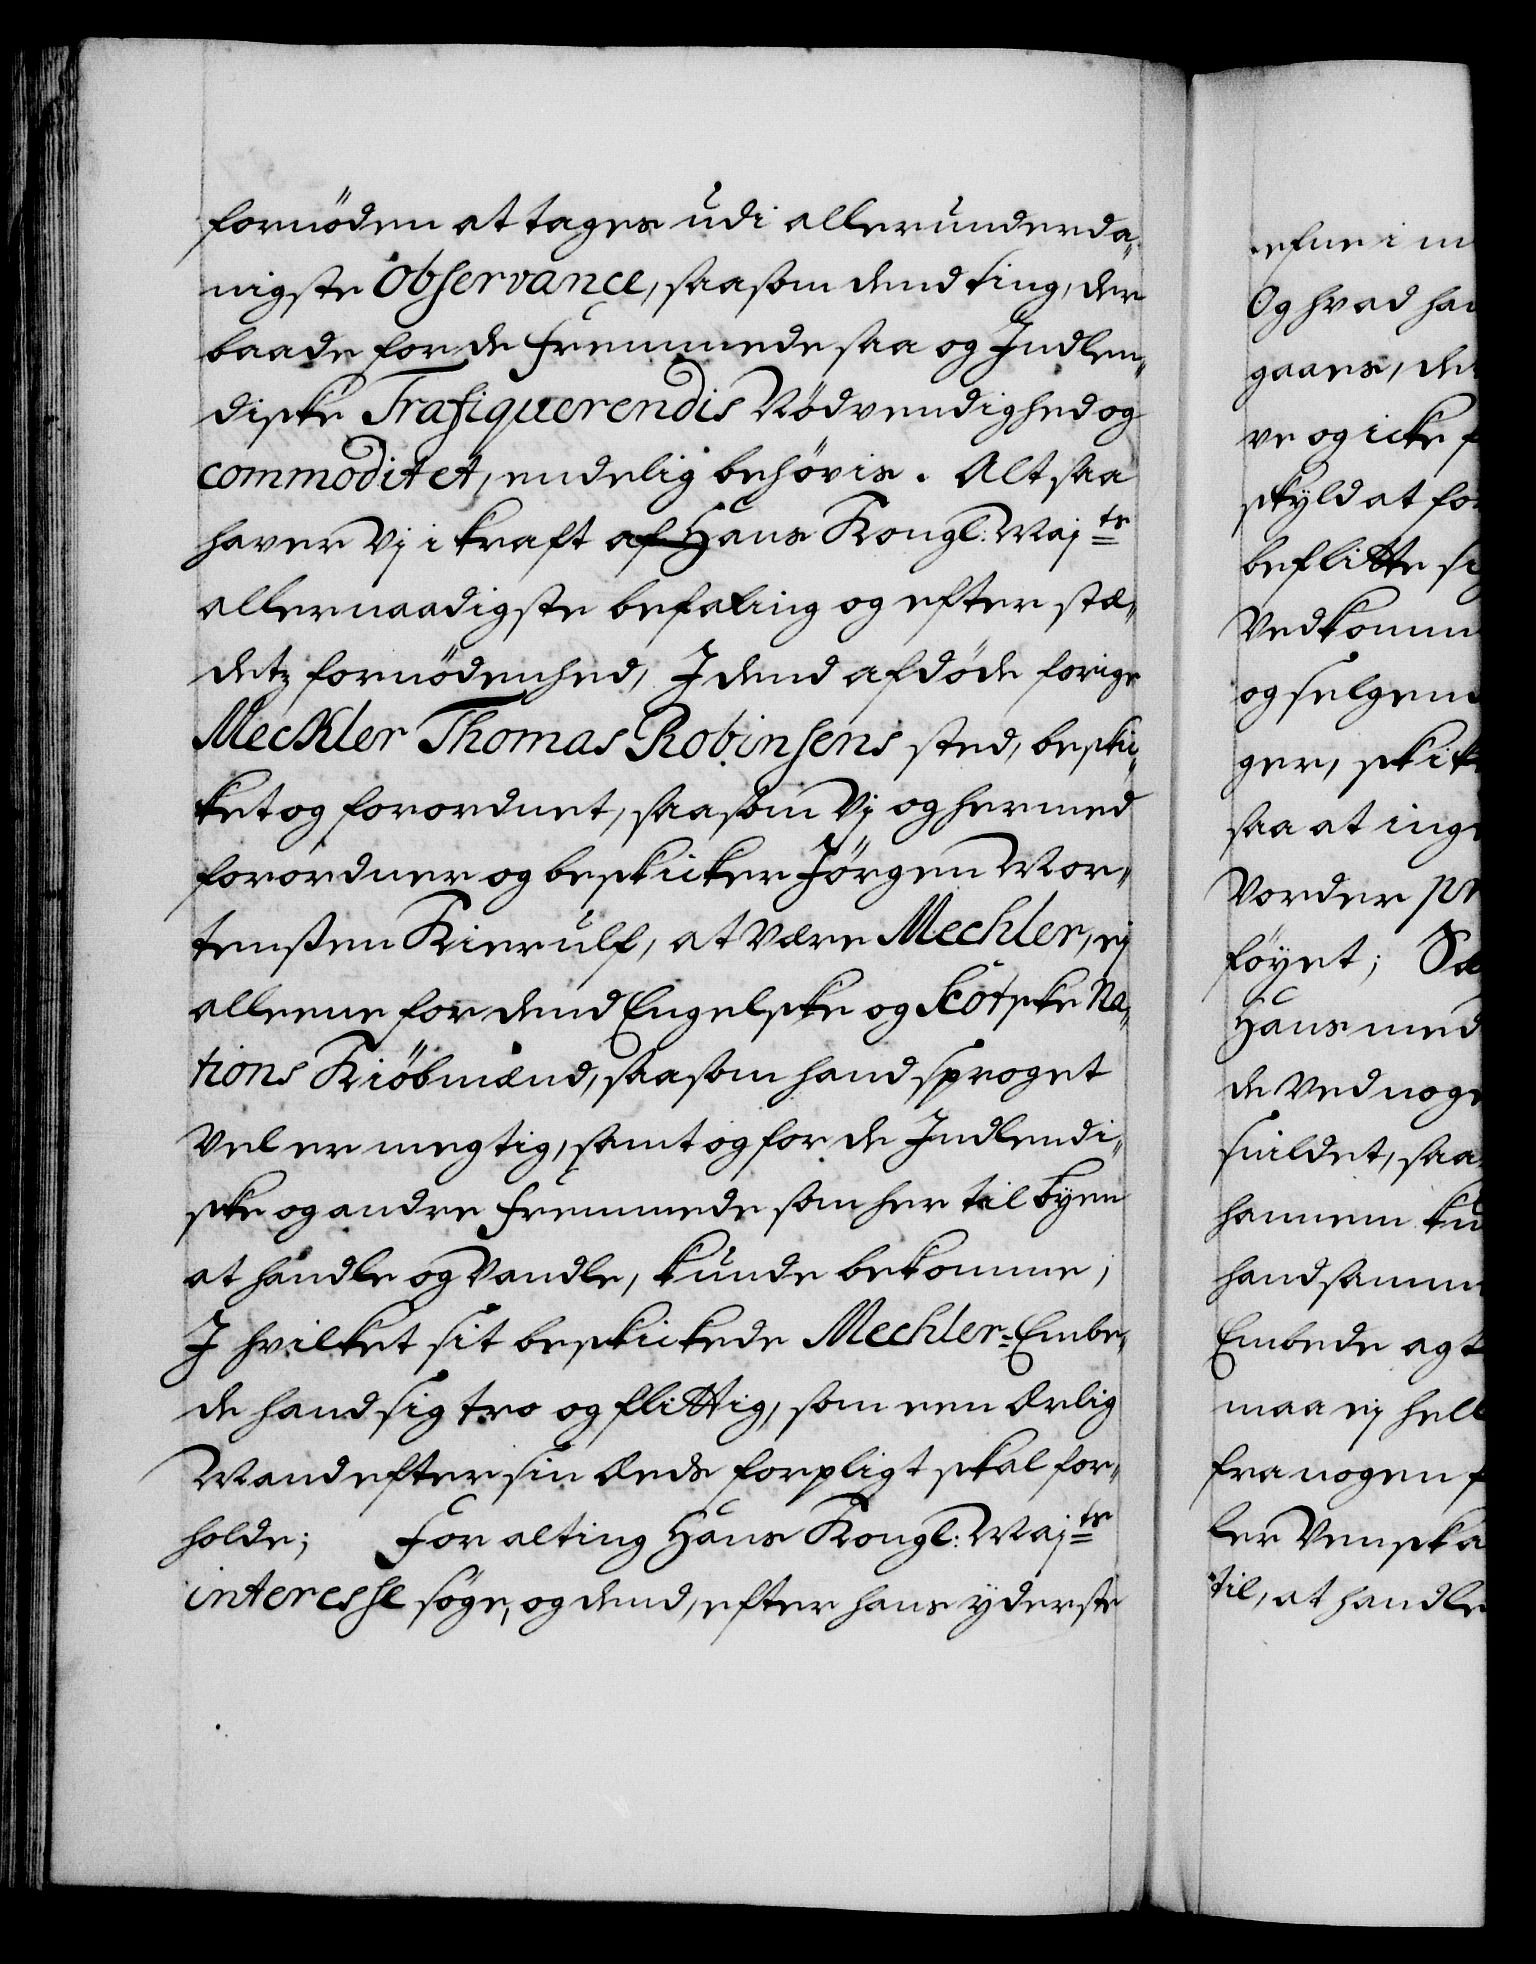 fornöden at tages udi allerunderda,,
nigste Observance, saasom dend ting, der
baade for de fremmede saa og Indlen,,
diske Trafiquerendis Nödvendighed og
commoditet, endelig behövis. Alt saa
haver Vj i kraft af Hans Kongl: Maj:ts
allernaadigste befaling og efter stæ,,
detz fornödenhed, I dend afdöde forige
Meckler Thomas Robinsens sted, beski,,
ket og forordnet, saasom Vj og hermed
forordner og beskicker Jörgen Mor,,
tenssen Kierulf, at være Mechler, ej
alleene for dend Engelske og Scotske Na,,
tions Kiöbmænd, saasom hand sproget
Vel er megtig, samt og for de Indlendi,,
ske og andre fremmede som her til byen
at handle og Vandle, kunde bekomme;
I hvilket sit beskickede Mechler=Embe,,
de hand sig tro og flittig, som een ærlig
Mand efter sin Eeds forpligt skal for,,
holde; For alting Hans Kongl: Maj:ts
interesse söge, og dend, efter hans yderste
efne i m
Og hvad han
gaaes, de
ve og icke f
skyld at for
beflitte sig
Vedkomm
og selgen
ger, skik
saa at inge
Vorder pr
föyet; Sa
Hans med
de Ved noge
snildet, saa
hannem ku
handsamm
Embede agt
maa ej hell
fra nogen f
ler Venska
til, at handle